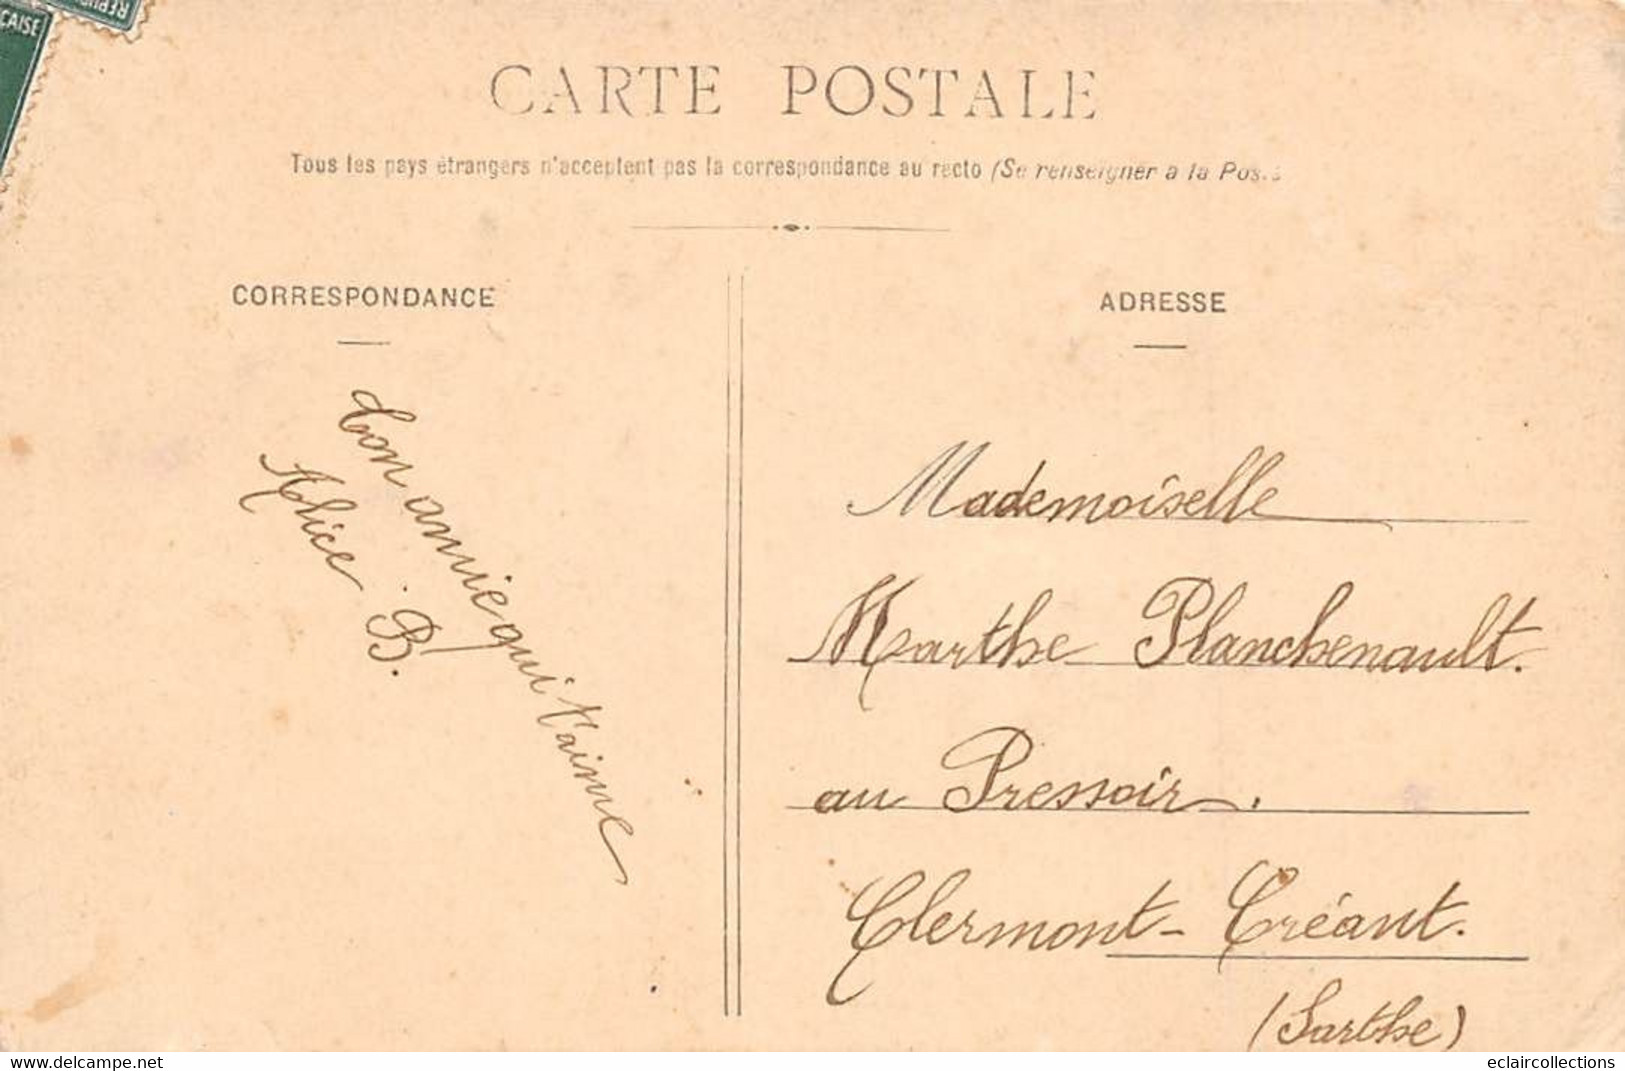 ÇAISE
RÉPU
CARTE POSTALE
Tous les pays étrangers n'acceptent pas la correspondance au recto (Se renseigner à la Pos
CORRESPONDANCE
ADRESSE
Ton amie qui t'aime
Alice B.
Mademoiselle
Marthe Planchenault.
au Pressoir.
Clermont-Créant.
(Sarthe)
eclaircollections